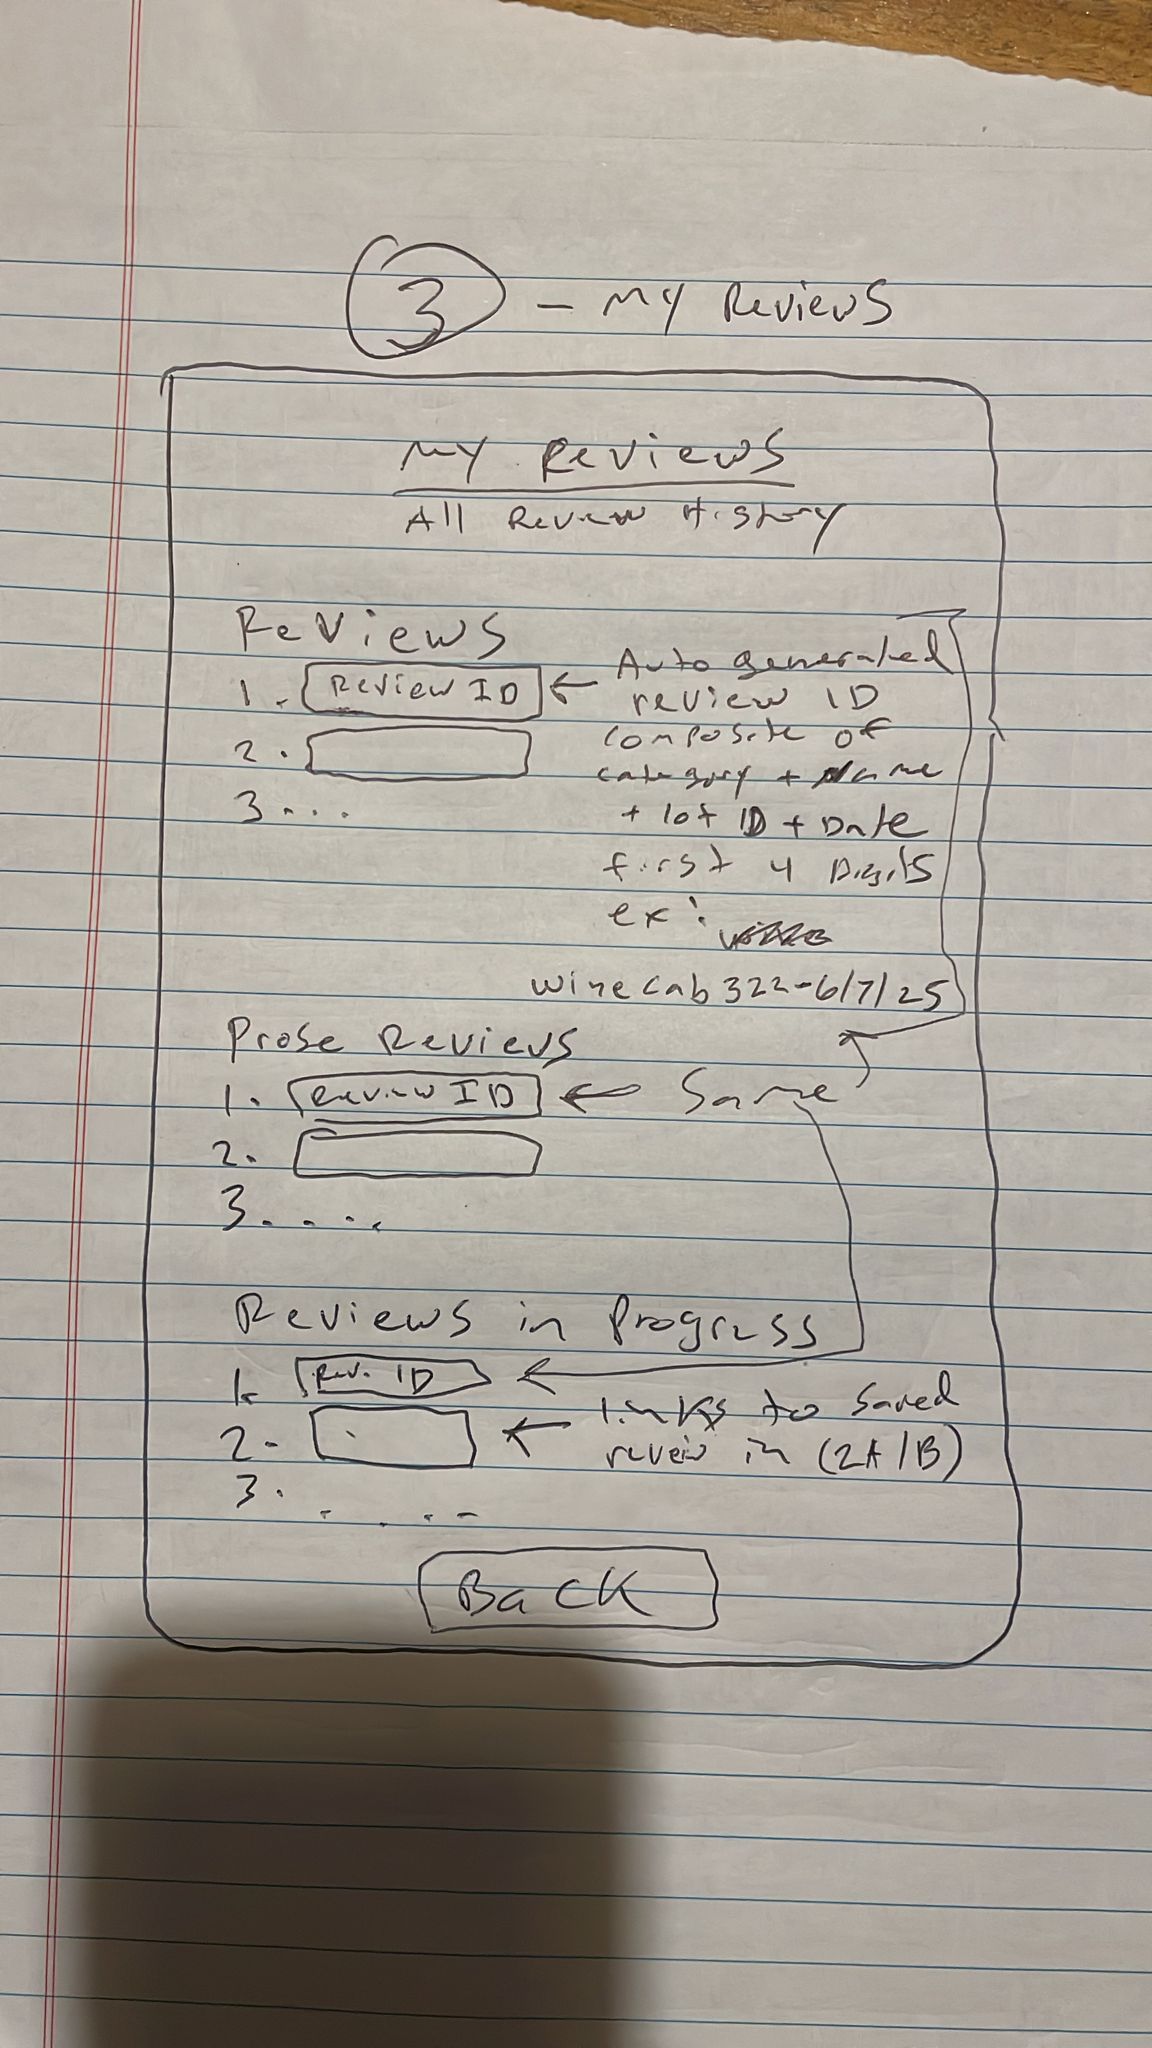 3 - My Reviews
My Reviews
All Review History
Reviews
1. Review ID ← Auto generated
review ID
composite of
category + Name
+ lot ID + Date
first 4 Digits
ex:
winecab322-6/7/25
2.
3...
Prose Reviews
1. Review ID ← Same
2.
3....
Reviews in Progress
1. Rev. ID
2. ← links to saved
reveiw in (2A/B)
3. ....
Back